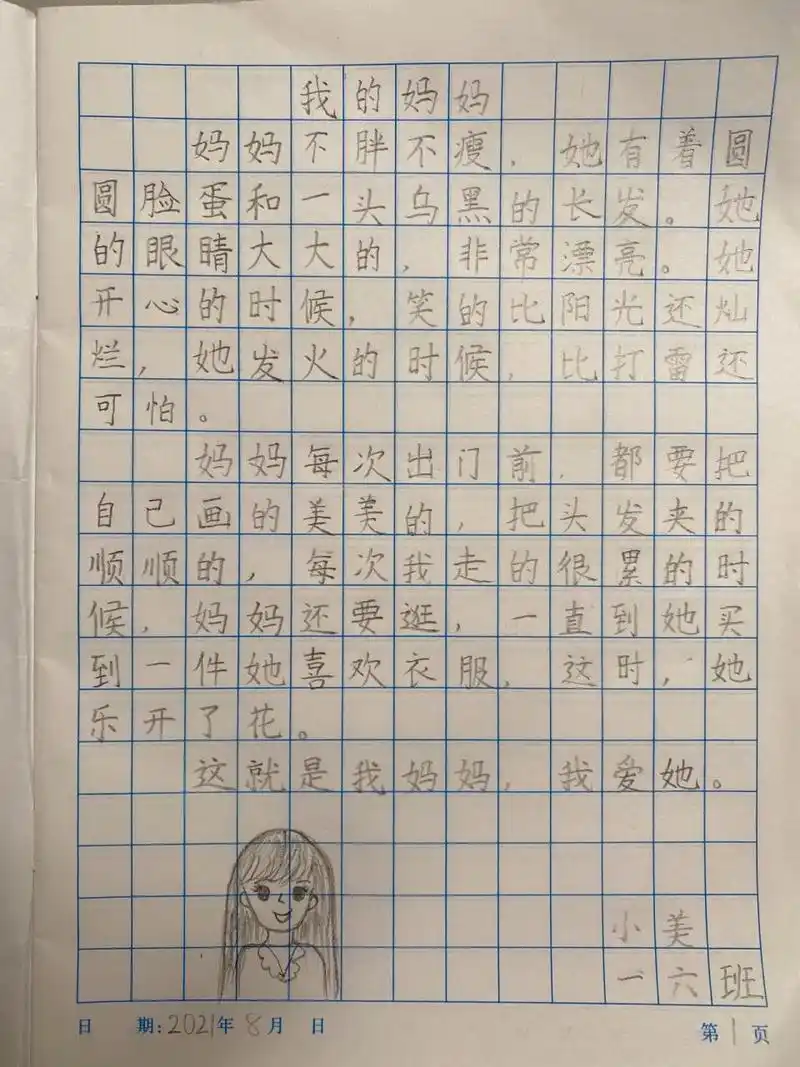 我的妈妈
妈妈不胖不瘦，她有着圆
圆脸蛋和一头乌黑的长发。她
的眼睛大大的，非常漂亮。她
开心的时候，笑的比阳光还灿
烂，她发火的时候，比打雷还
可怕。
妈妈每次出门前，都要把
自己画的美美的，把头发夹的
顺顺的，每次我走的很累的时
候，妈妈还要逛，一直到她买
到一件她喜欢衣服，这时，她
乐开了花。
这就是我妈妈，我爱她。
小美
一六班
日 期:2021年8月 日 第1页